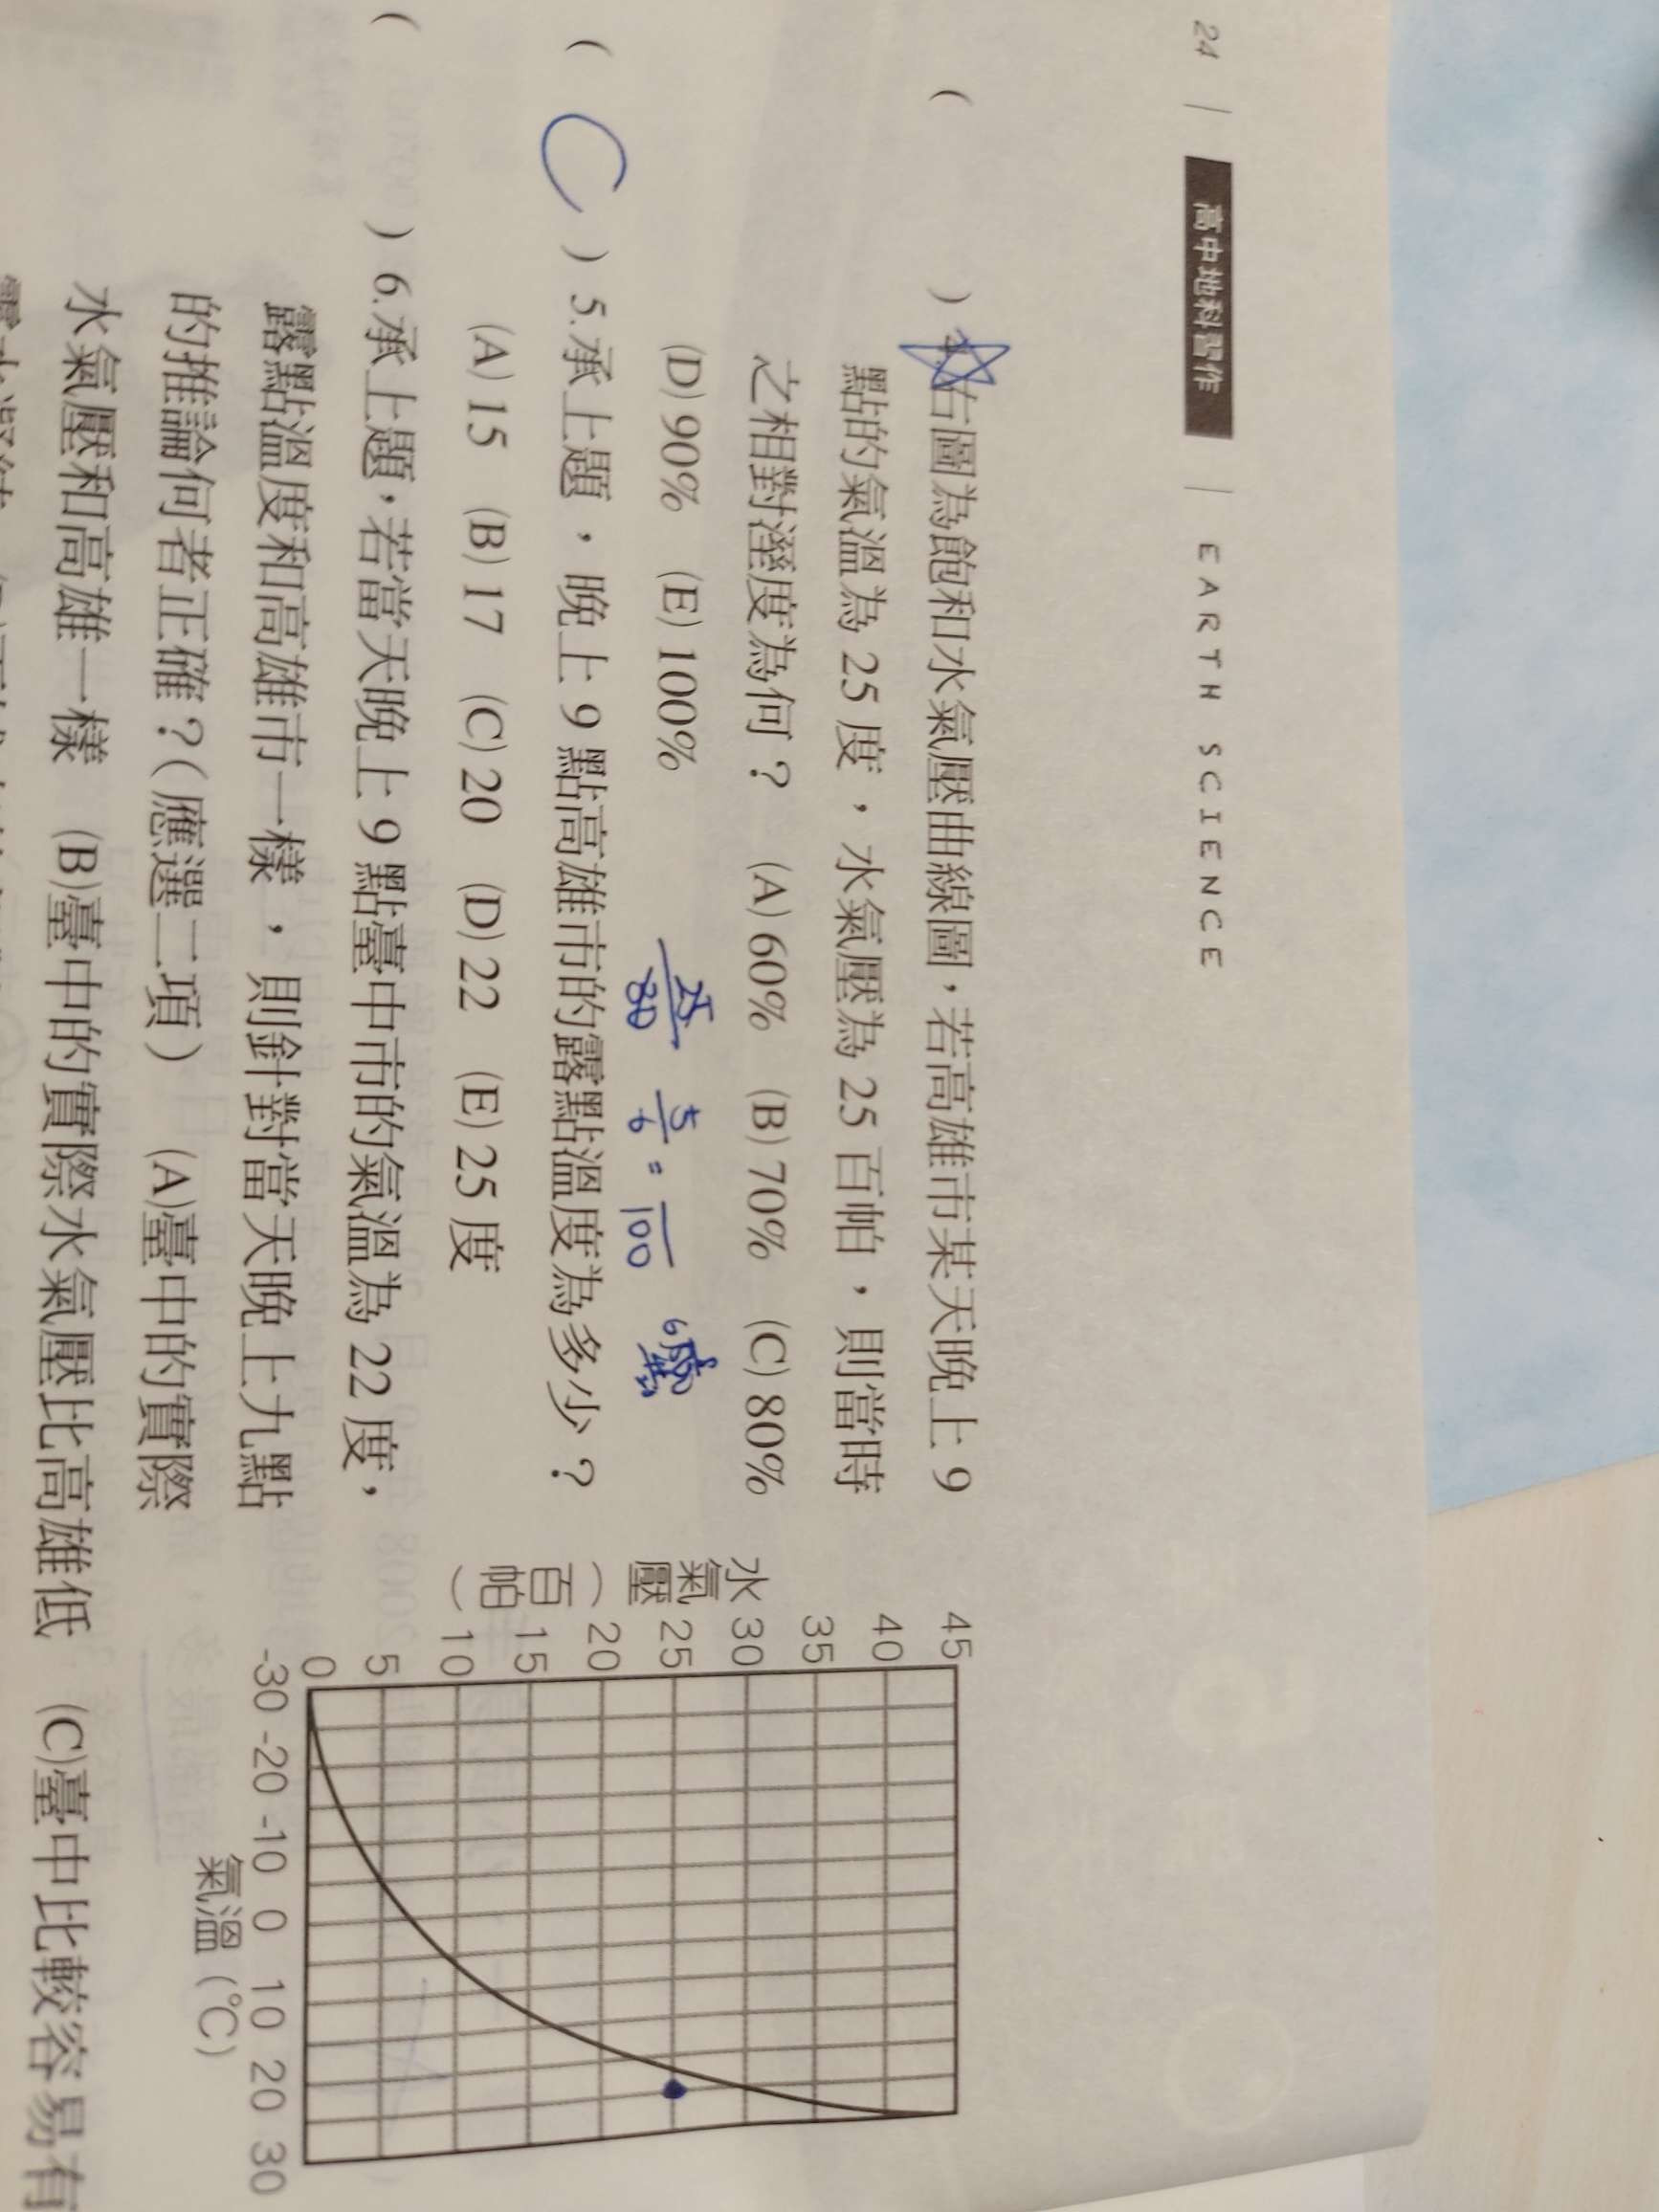 24 | 高中地科習作 | EARTH SCIENCE
( ) 右圖為飽和水氣壓曲線圖，若高雄市某天晚上 9
點的氣溫為 25 度，水氣壓為 25 百帕，則當時
之相對溼度為何？ (A) 60% (B) 70% (C) 80%
(D) 90% (E) 100%
25/30 5/6 = /100 6
( C ) 5.承上題，晚上 9 點高雄市的露點溫度為多少？
(A) 15 (B) 17 (C) 20 (D) 22 (E) 25 度
( ) 6.承上題，若當天晚上 9 點臺中市的氣溫為 22 度，
露點溫度和高雄市一樣，則針對當天晚上九點
的推論何者正確？(應選二項) (A)臺中的實際
水氣壓和高雄一樣 (B)臺中的實際水氣壓比高雄低 (C)臺中比較容易有
水氣壓（百帕）
45
40
35
30
25
20
15
10
5
0
-30 -20 -10 0 10 20 30
氣溫 (℃)